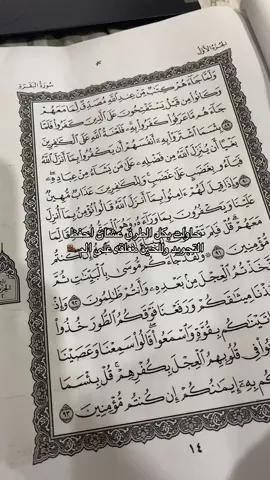 الجزء الأول
سورة البقرة
وَلَمَّا جَآءَهُمْ كِتَٰبٌ مِّنْ عِندِ ٱللَّهِ مُصَدِّقٌ لِّمَا مَعَهُمْ
وَكَانُوا۟ مِن قَبْلُ يَسْتَفْتِحُونَ عَلَى ٱلَّذِينَ كَفَرُوا۟ فَلَمَّا
جَآءَهُم مَّا عَرَفُوا۟ كَفَرُوا۟ بِهِۦ فَلَعْنَةُ ٱللَّهِ عَلَى ٱلْكَٰفِرِينَ
٨٩ بِئْسَمَا ٱشْتَرَوْا۟ بِهِۦٓ أَنفُسَهُمْ أَن يَكْفُرُوا۟ بِمَآ أَنزَلَ ٱللَّهُ
بَغْيًا أَن يُنَزِّلَ ٱللَّهُ مِن فَضْلِهِۦ عَلَىٰ مَن يَشَآءُ مِنْ عِبَادِهِۦ
فَبَآءُو بِغَضَبٍ عَلَىٰ غَضَبٍ وَلِلْكَٰفِرِينَ عَذَابٌ مُّهِينٌ
٩٠ وَإِذَا قِيلَ لَهُمْ ءَامِنُوا۟ بِمَآ أَنزَلَ ٱللَّهُ قَالُوا۟ نُؤْمِنُ بِمَآ أُنزِلَ
عَلَيْنَا وَيَكْفُرُونَ بِمَا وَرَآءَهُۥ وَهُوَ
مَعَهُمْ قُلْ فَلِمَ
محاولات بكل الطرق عشان احفظ
التجويد
كُنتُم
مُّؤْمِنِينَ ٩١ جَآءَكُم مُّوسَىٰ بِٱلْبَيِّنَٰتِ ثُمَّ
ٱتَّخَذْتُمُ ٱلْعِجْلَ مِنۢ بَعْدِهِۦ وَأَنتُمْ ظَٰلِمُونَ ٩٢ وَإِذْ
أَخَذْنَا مِيثَٰقَكُمْ وَرَفَعْنَا فَوْقَكُمُ ٱلطُّورَ خُذُوا۟
مَآ ءَاتَيْنَٰكُم بِقُوَّةٍ وَٱسْمَعُوا۟ قَالُوا۟ سَمِعْنَا وَعَصَيْنَا
وَأُشْرِبُوا۟ فِى قُلُوبِهِمُ ٱلْعِجْلَ بِكُفْرِهِمْ قُلْ بِئْسَمَا
يَأْمُرُكُم بِهِۦٓ إِيمَٰنُكُمْ إِن كُنتُم مُّؤْمِنِينَ ٩٣
١٤